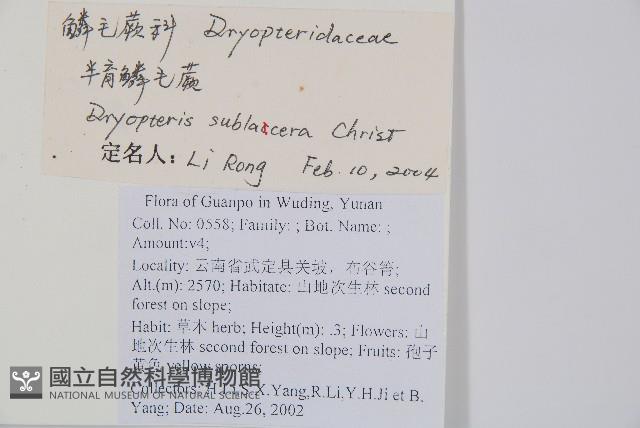 鳞毛蕨科 Dryopteridaceae
半育鳞毛蕨
Dryopteris sublacera Christ
定名人: Li Rong Feb. 10, 2004
Flora of Guanpo in Wuding, Yunan
Coll. No: 0558; Family: ; Bot. Name: ;
Amount:v4;
Locality: 云南省武定县关坡，布谷箐;
Alt.(m): 2570; Habitate: 山地次生林 second
forest on slope;
Habit: 草本 herb; Height(m): .3; Flowers: 山
地次生林 second forest on slope; Fruits: 孢子
黄色 yellow
國立自然科學博物館
NATIONAL MUSEUM OF NATURAL SCIENCE
Collectors: X.Yang,R.Li,Y.H.Ji et B.
Yang; Date: Aug.26, 2002